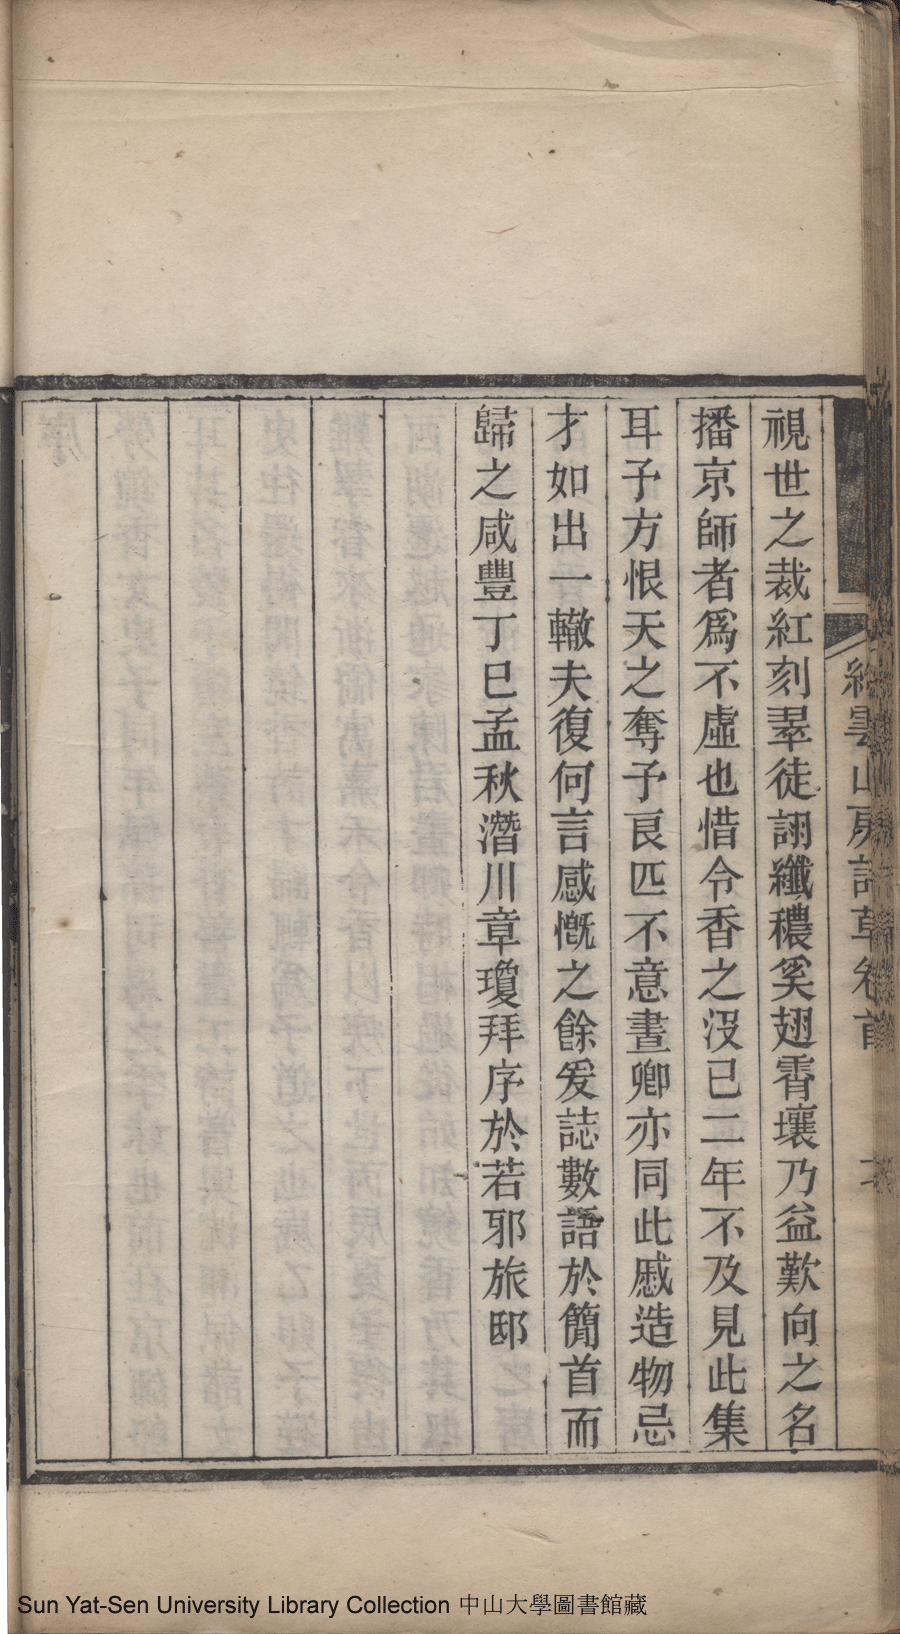 視世之裁紅刻翠徒詡纖穠奚翅霄壤乃益歎向之名
播京師者爲不虛也惜令香之沒已二年不及見此集
耳予方恨天之奪予良匹不意晝卿亦同此戚造物忌
才如出一轍夫復何言感慨之餘爰誌數語於簡首而
歸之咸豐丁巳孟秋潛川章瓊拜序於若邪旅邸
雲山房詩草卷首
Sun Yat-Sen University Library Collection 中山大學圖書館藏